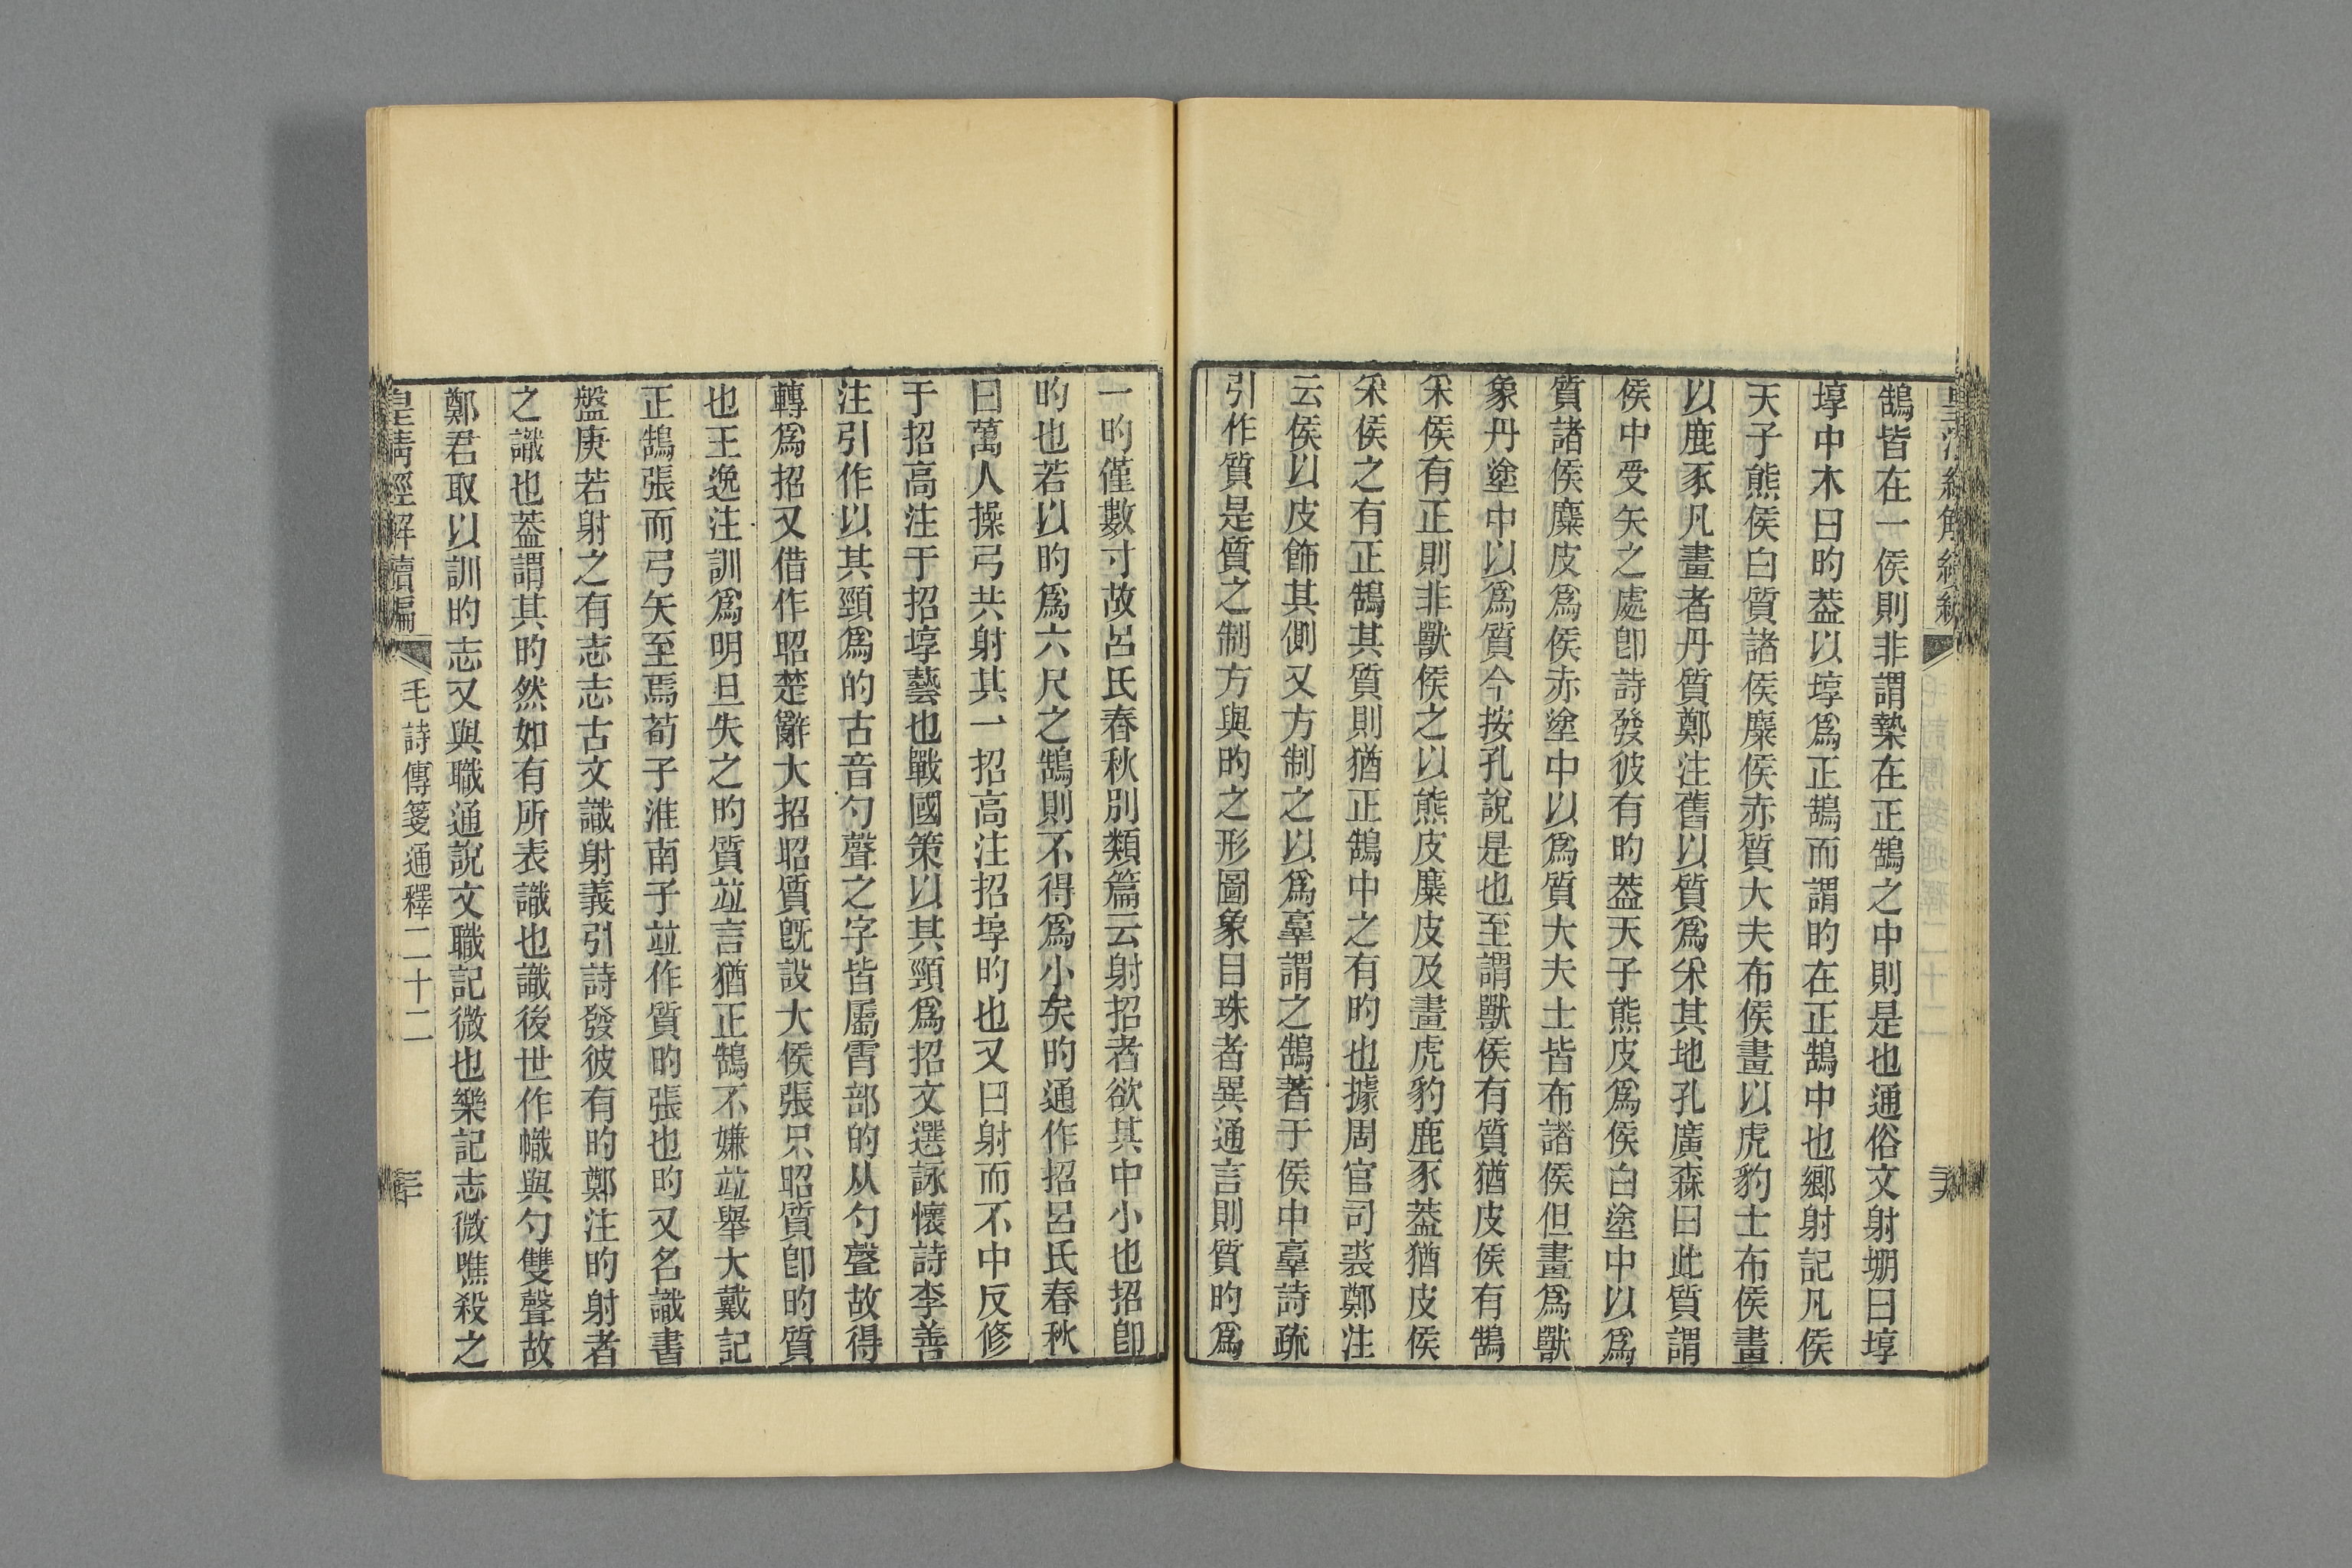 鵠皆在一侯則非謂槷在正鵠之中則是也通俗文射堋曰埻
埻中木曰旳葢以埻爲正鵠而謂旳在正鵠中也鄉射記凡侯
天子熊侯白質諸侯麋侯赤質大夫布侯畫以虎豹士布侯畫
以鹿豕凡畫者丹質鄭注舊以質爲釆其地孔廣森曰此質謂
侯中受矢之處卽詩發彼有旳葢天子熊皮爲侯白塗中以爲
質諸侯麋皮爲侯赤塗中以爲質大夫士皆布諸侯但畫爲獸
象丹塗中以爲質今按孔說是也至謂獸侯有質猶皮侯有鵠
釆侯有正則非獸侯之以熊皮麋皮及畫虎豹鹿豕葢猶皮侯
釆侯之有正鵠其質則猶正鵠中之有旳也據周官司裘鄭注
云侯以皮飾其側又方制之以爲辜謂之鵠著于侯中辜詩疏
引作質是質之制方與旳之形圜象目珠者異通言則質旳爲
一旳僅數寸故呂氏春秋別類篇云射招者欲其中小也招卽
旳也若以旳爲六尺之鵠則不得爲小矣旳通作招呂氏春秋
曰萬人操弓共射其一招高注招埻旳也又曰射而不中反修
于招高注于招埻藝也戰國策以其頸爲招文選詠懷詩李善
注引作以其頸爲的古音勺聲之字皆屬宵部的从勺聲故得
轉爲招又借作昭楚辭大招昭質旣設大侯張只昭質卽旳質
也王逸注訓爲明旦失之旳質竝言猶正鵠不嫌竝舉大戴記
正鵠張而弓矢至焉荀子淮南子竝作質旳張也旳又名識書
盤庚若射之有志志古文識射義引詩發彼有旳鄭注旳射者
之識也葢謂其旳然如有所表識也識後世作幟與勺雙聲故
鄭君取以訓旳志又與職通說文職記微也樂記志微噍殺之
皇淸經解續編 毛詩傳箋通釋二十二 三十